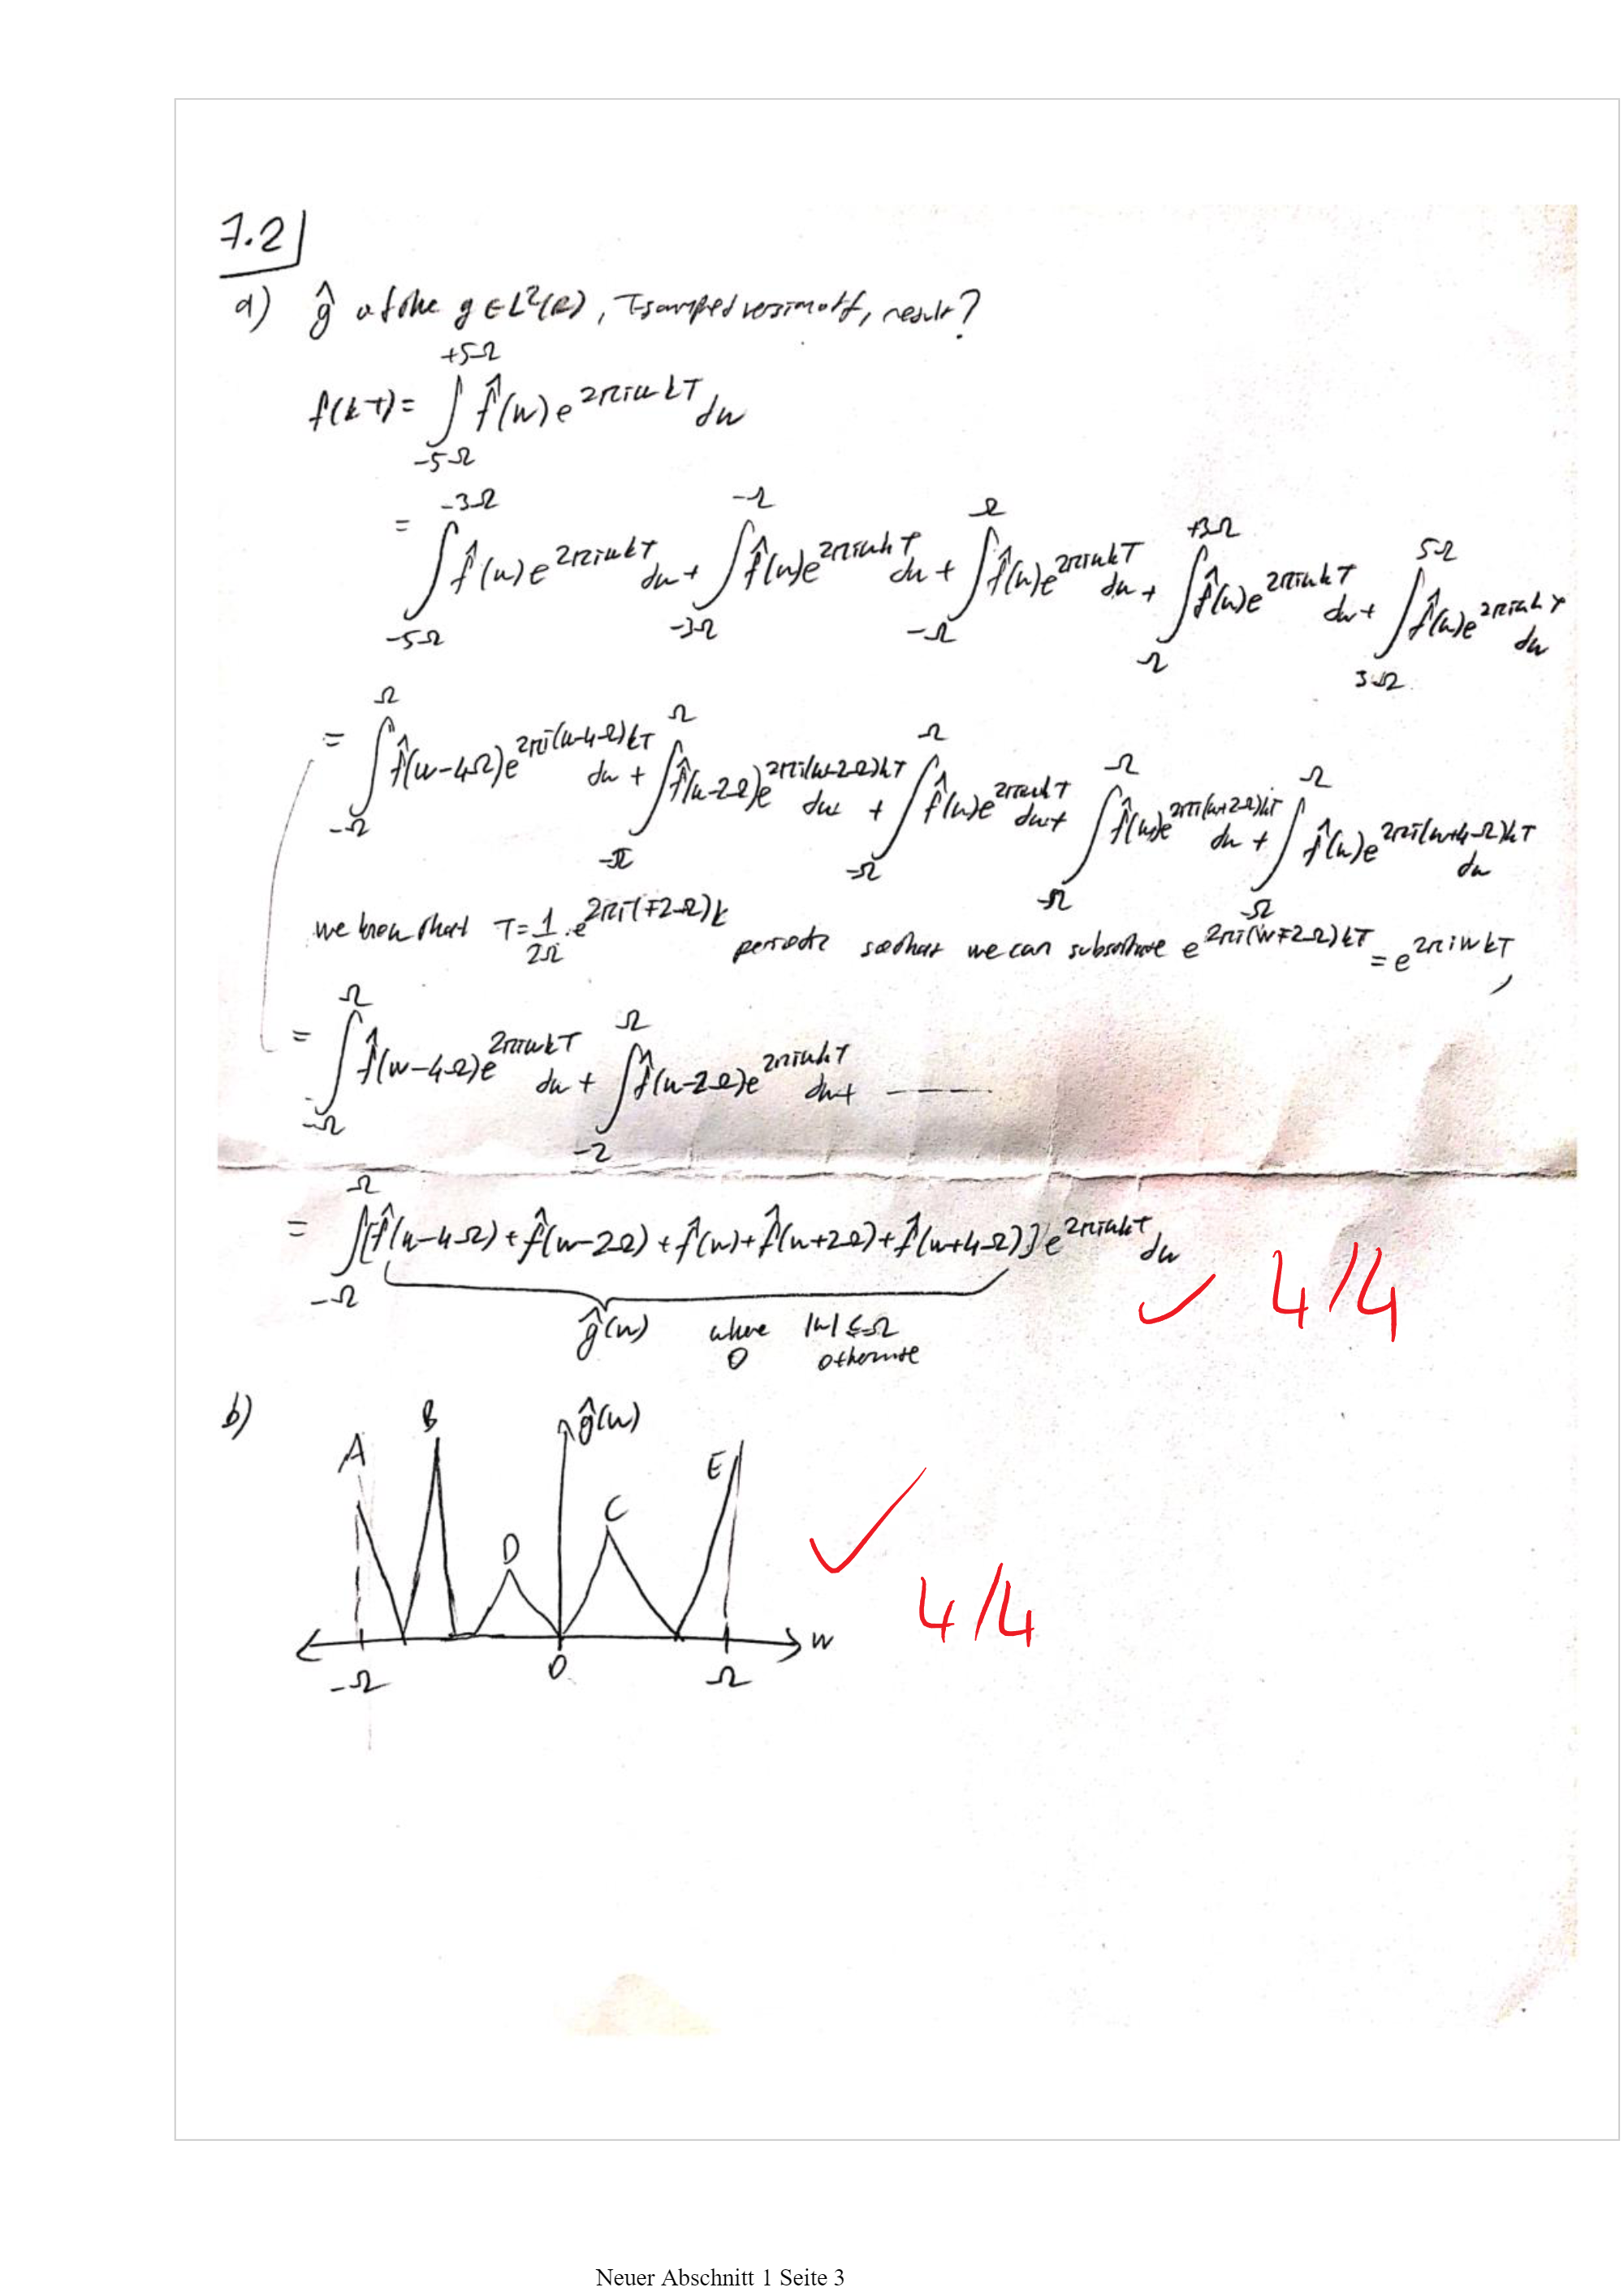 7.2
a) ĝ of the g ∈ L²(R), T sampled version of f, result?
f(kT) = ∫_{-5Ω}^{+5Ω} f̂(w) e^{2πiwkT} dw
= ∫_{-5Ω}^{-3Ω} f̂(w) e^{2πiwkT} dw + ∫_{-3Ω}^{-Ω} f̂(w) e^{2πiwkT} dw + ∫_{-Ω}^{Ω} f̂(w) e^{2πiwkT} dw + ∫_{Ω}^{+3Ω} f̂(w) e^{2πiwkT} dw + ∫_{3Ω}^{5Ω} f̂(w) e^{2πiwkT} dw
= ∫_{-Ω}^{Ω} f̂(w-4Ω) e^{2πi(w-4Ω)kT} dw + ∫_{-Ω}^{Ω} f̂(w-2Ω) e^{2πi(w-2Ω)kT} dw + ∫_{-Ω}^{Ω} f̂(w) e^{2πiwkT} dw + ∫_{-Ω}^{Ω} f̂(w) e^{2πi(w+2Ω)kT} dw + ∫_{-Ω}^{Ω} f̂(w) e^{2πi(w+4Ω)kT} dw
we know that T = 1/2Ω . e^{2πi(∓2Ω)k} periodic so that we can substitute e^{2πi(w∓2Ω)kT} = e^{2πiwkT},
= ∫_{-Ω}^{Ω} f̂(w-4Ω) e^{2πiwkT} dw + ∫_{-2}^{Ω} f̂(w-2Ω) e^{2πiwkT} dw + -----
= ∫_{-Ω}^{Ω} [f̂(w-4Ω) + f̂(w-2Ω) + f̂(w) + f̂(w+2Ω) + f̂(w+4Ω)] e^{2πiwkT} dw
✓ 4/4
ĝ(w) where |w| ≤ Ω
0 otherwise
b)
A B D ĝ(w) C E
✓
4/4
-Ω 0 Ω w
Neuer Abschnitt 1 Seite 3